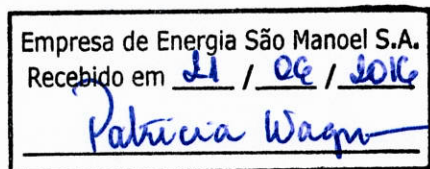 Empresa de Energia São Manoel S.A.
Recebido em 21 / 06 / 2016
Patricia Wagn